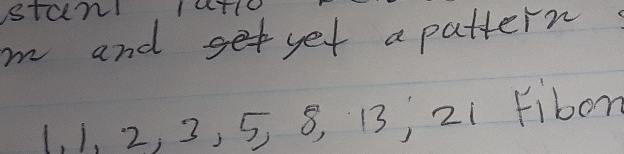 stant ratio
m and get yet a pattern
1, 1, 2, 3, 5, 8, 13, 21 Fibon